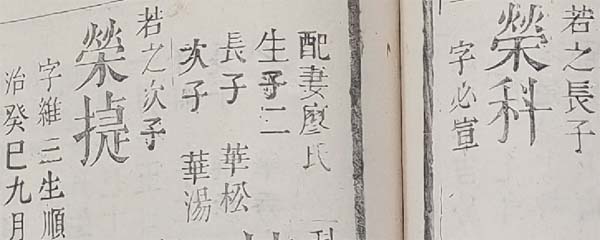 若之長子
榮科
字必
配妻廖氏
生子二
長子 華松
次子 華湯
若之次子
榮㨗
字維三生順
治癸巳九月